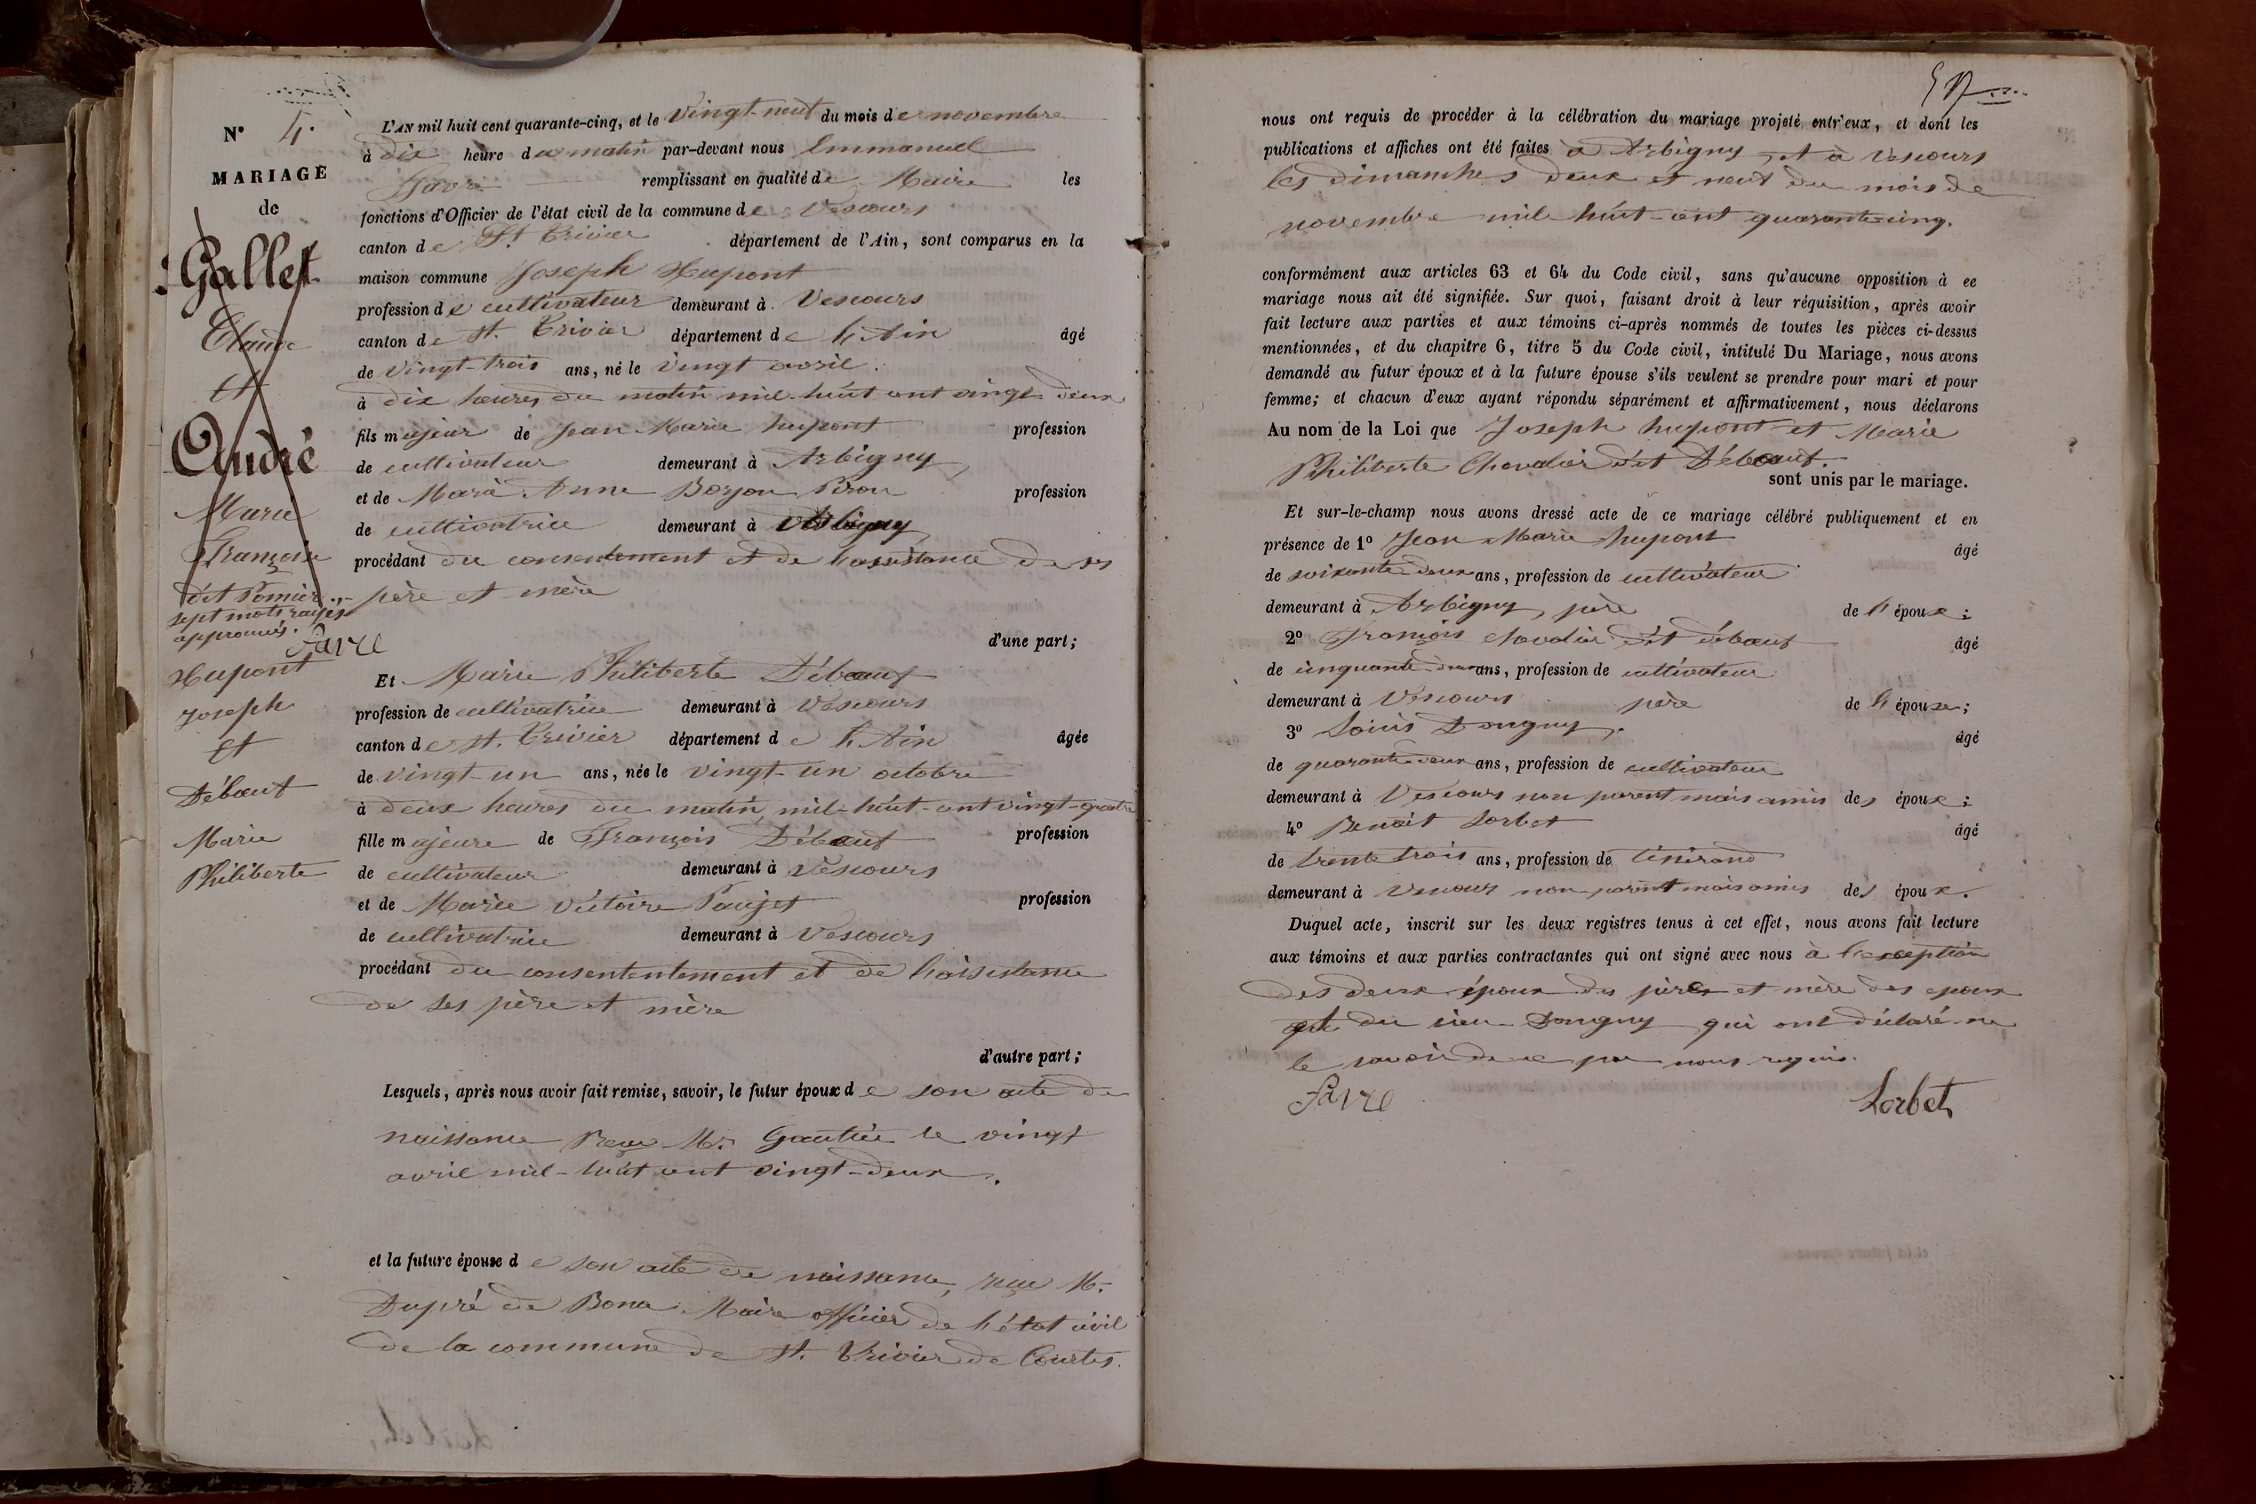 N° 4.
MARIAGE
de
Gallet
Claude
et
André
Marie
Françoise
dit Pomier
sept mots rayés
approuvés.
Favre
Hupont
Joseph
Et
Débœuf
Marie
Philiberte
L'AN mil huit cent quarante-cinq, et le Vingt-neuf du mois de novembre
à dix heure du matin par-devant nous Emmanuel
Favre remplissant en qualité de Maire les
fonctions d'Officier de l'état civil de la commune de Vescours
canton de St. Trivier département de l'Ain, sont comparus en la
maison commune Joseph Hupont
profession de cultivateur demeurant à Vescours
canton de St. Trivier département de l'Ain âgé
de Vingt-trois ans, né le Vingt avril.
à dix heures du matin mil-huit cent vingt deux
fils majeur de Jean Marie hupont profession
de cultivateur demeurant à Arbigny,
et de Marie Anne Borjon Piron profession
de cultivatrice demeurant à Arbigny
procédant du consentement et de l'assistance de ses
père et mère
d'une part;
Et Marie Philiberte Débœuf
profession de cultivatrice demeurant à Vescours
canton de St. Trivier département de l'Ain âgée
de vingt-un ans, née le vingt-un octobre
à deux heures du matin, mil-huit-cent vingt-quatre
fille majeure de François Débœuf profession
de cultivateur demeurant à Vescours
et de Marie Victoire Pauget profession
de cultivatrice demeurant à Vescours
procédant du consententement et de l'assistance
de ses père et mère
d'autre part;
Lesquels, après nous avoir fait remise, savoir, le futur époux de son acte de
naissance Reçu Mr. Gautier le vingt
avril mil-huit cent vingt-deux.
et la future épouse de son acte de naissance, reçu Mr.
Dupré de Bona Maire officier de l'état civil
de la commune de St. Trivier de Courtes.
nous ont requis de procéder à la célébration du mariage projeté entr'eux, et dont les
publications et affiches ont été faites à Arbigny, et à Vescours
les dimanches deux et neuf du mois de
novembre mil-huit-cent quarante-cinq.
conformément aux articles 63 et 64 du Code civil, sans qu'aucune opposition à ce
mariage nous ait été signifiée. Sur quoi, faisant droit à leur réquisition, après avoir
fait lecture aux parties et aux témoins ci-après nommés de toutes les pièces ci-dessus
mentionnées, et du chapitre 6, titre 5 du Code civil, intitulé Du Mariage, nous avons
demandé au futur époux et à la future épouse s'ils veulent se prendre pour mari et pour
femme; et chacun d'eux ayant répondu séparément et affirmativement, nous déclarons
Au nom de la Loi que Joseph hupont et Marie
Philiberte Chevalier dit Débœuf.
sont unis par le mariage.
Et sur-le-champ nous avons dressé acte de ce mariage célébré publiquement et en
présence de 1° Jean Marie hupont âgé
de soixante-deux ans, profession de cultivateur
demeurant à Arbigny, père de l'époux;
2° François chevalier dit débœuf âgé
de cinquante-deux ans, profession de cultivateur
demeurant à Vescours père de l'épouse;
3° Louis Dongny. âgé
de quarante-deux ans, profession de cultivateur
demeurant à Vescours non parent mais amis des époux;
4° Benoit Lorbet âgé
de trente trois ans, profession de tisserand
demeurant à Vescours non parent mais amis des époux.
Duquel acte, inscrit sur les deux registres tenus à cet effet, nous avons fait lecture
aux témoins et aux parties contractantes qui ont signé avec nous à l'exception
des deux époux des pères et mère des epoux
et du sieur Dongny qui ont déclaré ne
le savoir de ce par nous requis.
Favre Lorbet